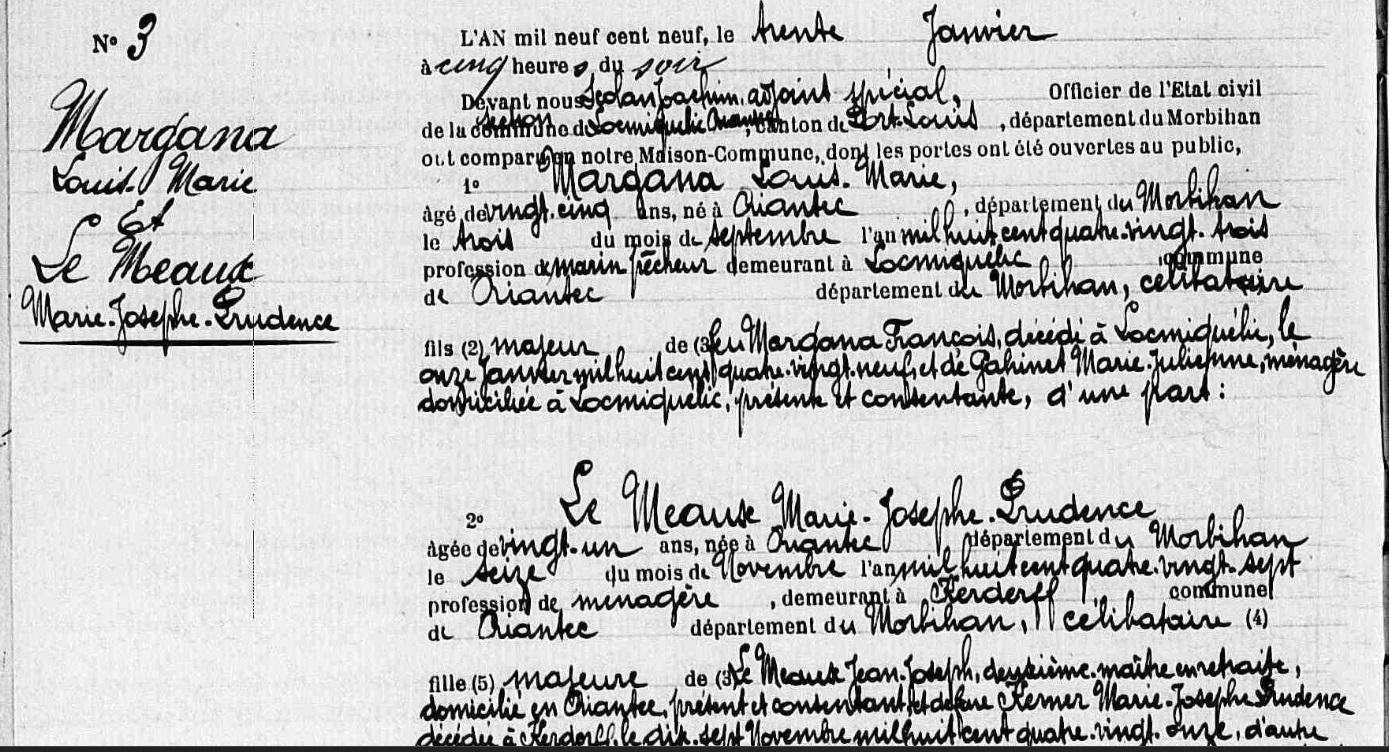 N° 3
Margana
Louis. Marie
Et
Le Meaux
Marie. Josephe. Prudence
L'AN mil neuf cent neuf, le trente Janvier
à cinq heures, du soir
Devant nous Joachim. adjoint spécial, Officier de l'Etat civil
section
de la commune de Locmiquélic Riantec, canton de Port-Louis, département du Morbihan
ont comparu en notre Maison-Commune, dont les portes ont été ouvertes au public,
1° Margana Louis. Marie,
âgé de vingt. cinq ans, né à Riantec, département du Morbihan
le trois du mois de septembre l'an mil huit cent quatre. vingt. trois
profession de marin pêcheur demeurant à Locmiquélic commune
de Riantec département du Morbihan, célibataire
fils (2) majeur de (3) feu Margana François, décédé à Locmiquélic, le
onze Janvier mil huit cent quatre. vingt. neuf, et de Gahinet Marie. Julienne, ménagère
domiciliée à Locmiquélic, présente et consentante, d'une part:
2° Le Meaux Marie. Josephe. Prudence
âgée de vingt. un ans, née à Riantec département du Morbihan
le seize du mois de Novembre l'an mil huit cent quatre. vingt. sept
profession de ménagère, demeurant à Kerderff commune
de Riantec département du Morbihan, célibataire (4)
fille (5) majeure de (3) Le Meaux Jean. Joseph, deuxième. maître en retraite,
domicilié en Riantec, présent et consentant, et de feue Kerner Marie. Josephe Prudence
décédée à Kerderff, le dix. sept Novembre mil huit cent quatre. vingt. onze, d'autre